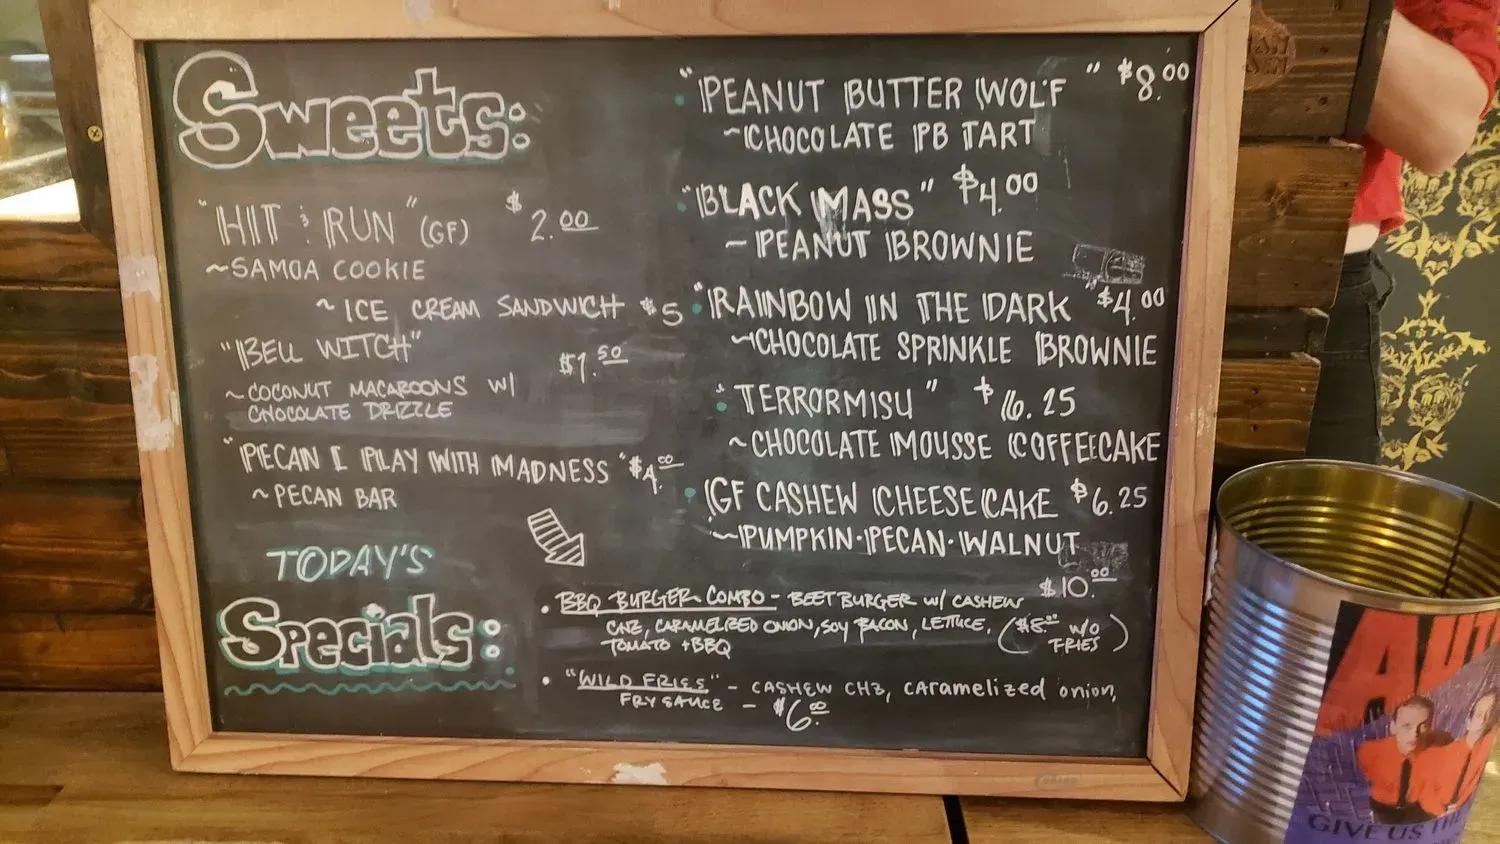 Sweets:
"HIT & RUN" (GF) $2.00
~SAMOA COOKIE
~ICE CREAM SANDWICH $5
"BELL WITCH" $1.50
~COCONUT MACAROONS W/
CHOCOLATE DRIZZLE
"PECAN I PLAY WITH MADNESS" $4.00
~PECAN BAR
"PEANUT BUTTER WOLF" $8.00
~CHOCOLATE PB TART
"BLACK MASS" $4.00
~PEANUT BROWNIE
"RAINBOW IN THE DARK" $4.00
~CHOCOLATE SPRINKLE BROWNIE
"TERRORMISU" $6.25
~CHOCOLATE MOUSSE COFFEECAKE
GF CASHEW CHEESECAKE $6.25
~PUMPKIN·PECAN·WALNUT
TODAY'S
Specials:
• BBQ BURGER COMBO - BEET BURGER W/ CASHEW $10.00
CHZ, CARAMELIZED ONION, SOY BACON, LETTUCE, ($8.00 W/O
TOMATO + BBQ FRIES)
• "WILD FRIES" - CASHEW CHZ, CARAMELIZED ONION,
FRY SAUCE - $6.00
GIVE US